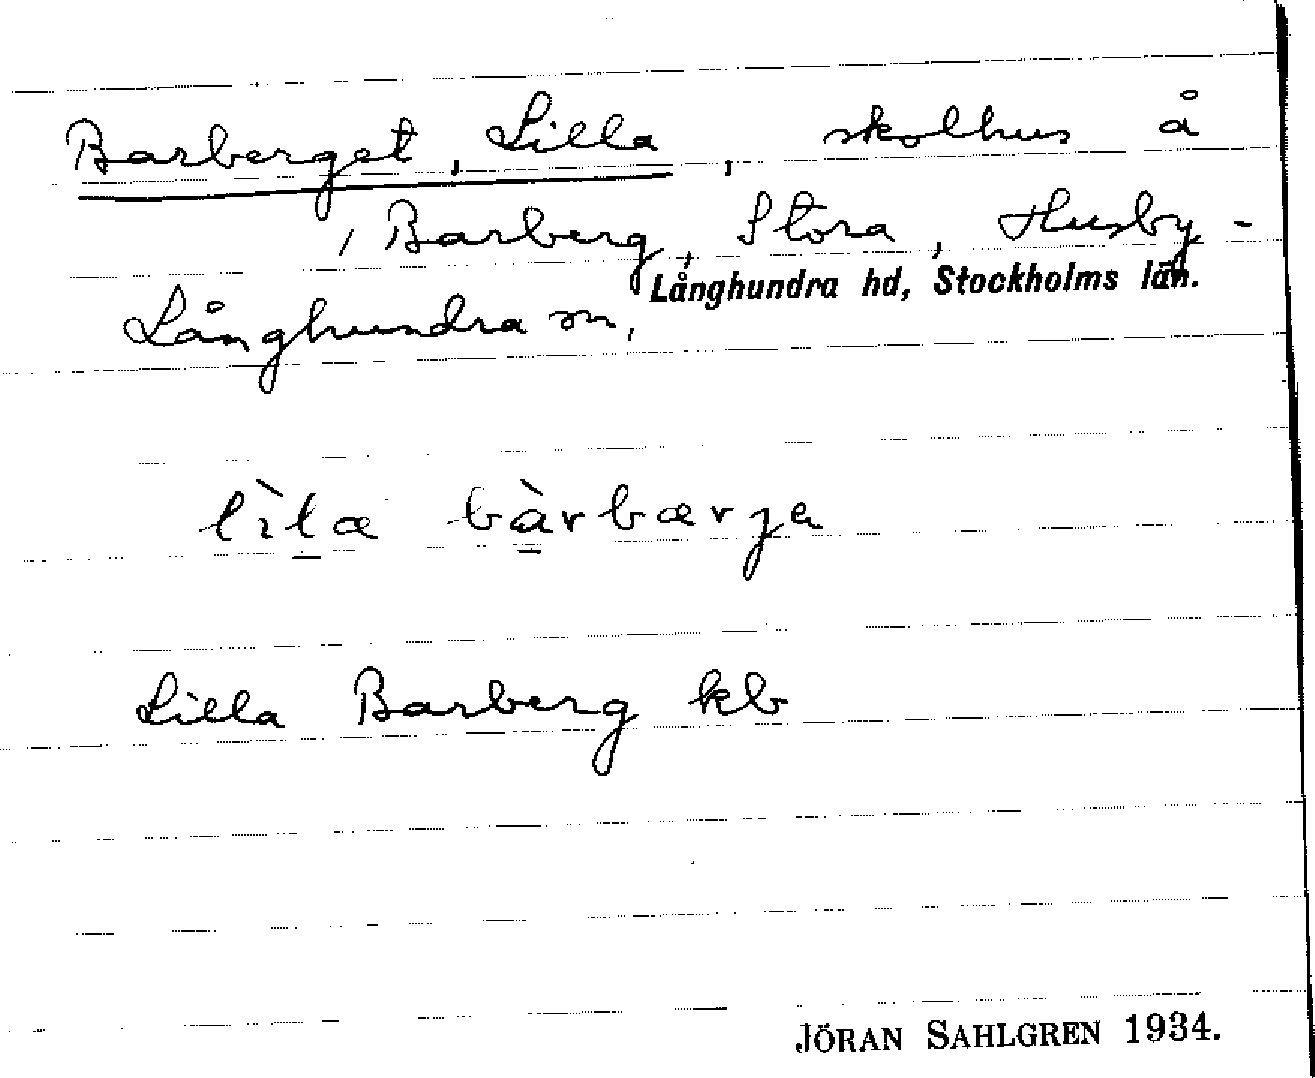 Barberget, Lilla, skolhus å
, Barberg, Stora, Husby-
Långhundra hd, Stockholms län.
Långhundra sn,
lìla bàrbærja
Lilla Barberg kb
JÖRAN SAHLGREN 1934.